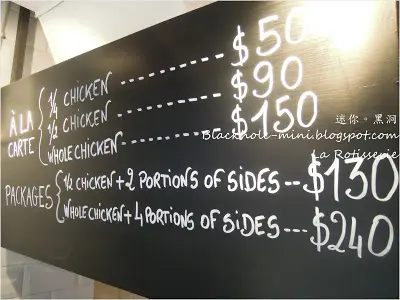 À LA CARTE
1/4 CHICKEN ---------- $50
1/2 CHICKEN ---------- $90
WHOLE CHICKEN ---------- $150
PACKAGES
1/2 CHICKEN + 2 PORTIONS OF SIDES --- $130
WHOLE CHICKEN + 4 PORTIONS OF SIDES ---- $240
迷你。黑洞
Blackhole-mini.blogspot.com
La Rotisserie